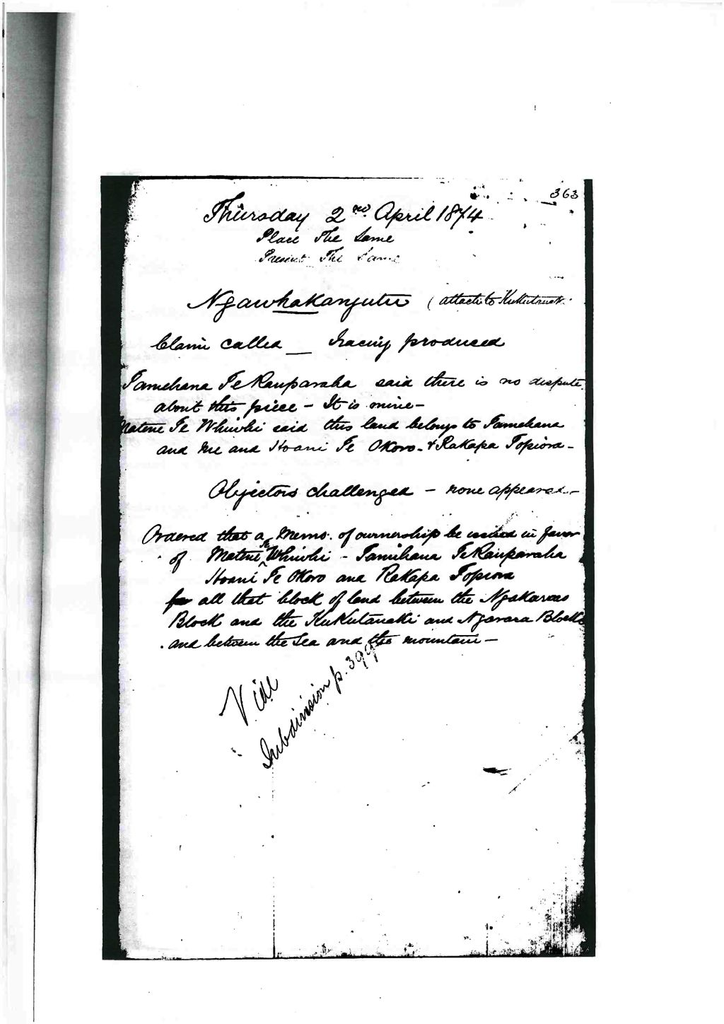 363
Thursday 2nd April 1874
Place The Same
Present The Same
Ngawhakangutu (attach to
Claim called — Tracing produced
Tamehana Te Rauparaha said there is no dispute
about this piece – It is mine –
Matene Te Whiwhi said this land belongs to Tamehana
and me and Hoani Te Okoro – & Rakapa Topiora –
Objectors challenged – none appeared –
Ordered that a Memo. of ownership be issued in favor
of Matene Te Whiwhi – Tamihana Te Rauparaha
Hoani Te Okoro and Rakapa Topiora
for all that block of land between the
Block and the Kukutauaki and Ngarara Blocks
and between the Sea and the mountain –
Vide
Subdivision p. 399